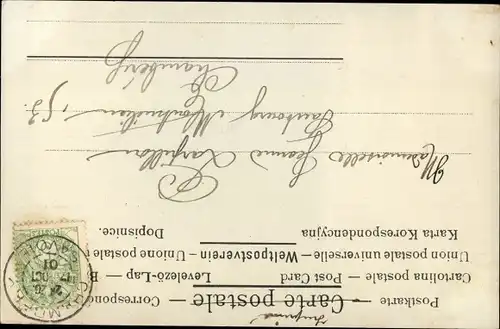 Imprimé
Carte postale
Postkarte — Correspondenc
Cartolina postale — Post Card — Levelező-Lap — B
Union postale universelle — Weltpostverein — Unione postale
Karta Korespondencyjna Dopisnice.
Mademoiselle Jeanne
Faubourg Montmélian, 53.
Chambéry
CHAMBERY
OCT
01
SAVOIE